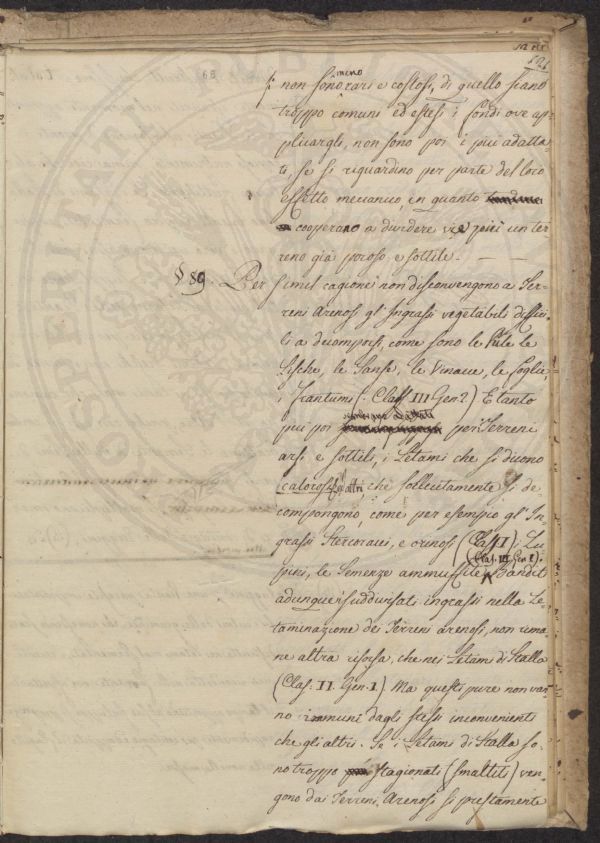 521
non sono meno rari e costosi, di quello siano
troppo comuni ed estesi i fondi ove ap-
plicargli, non sono poi i più adatta-
ti, se si riguardino per parte del loro
effetto meccanico, in quanto
cooperano a dividere vie più un ter-
reno già poroso, e sottile. —
§ 89. Per simil cagione non disconvengono a Ter-
reni Arenosi gl'Ingrassi vegetabili diffici-
li a decomporsi, come sono le Pule le
Lische, le Sanse, le Vinacce, le foglie,
i Frantumi (Clas. III Gen. 2.) E tanto
più poi sembrano adattati per i Terreni
arsi e sottili, i Letami che si dicono
calorosi, altri, che sollecitamente si de-
compongono, come per esempio gl'In-
grassi Stercoracei, e orinosi (Clas. I.) Lu-
(Clas. III. Gen. 1.)
pini, le Semenze ammuffite. Banditi
adunque i suddivisati ingrassi nella Le-
taminazione dei Terreni arenosi, non rima-
ne altra risorsa, che nei Letami di Stalla
(Clas. II. Gen. 1.) Ma questi pure non van-
no immuni dagli stessi inconvenienti
che gli altri. Se i Letami di Stalla so-
no troppo stagionati (smaltiti) ven-
gono dai Terreni Arenosi si prestamente